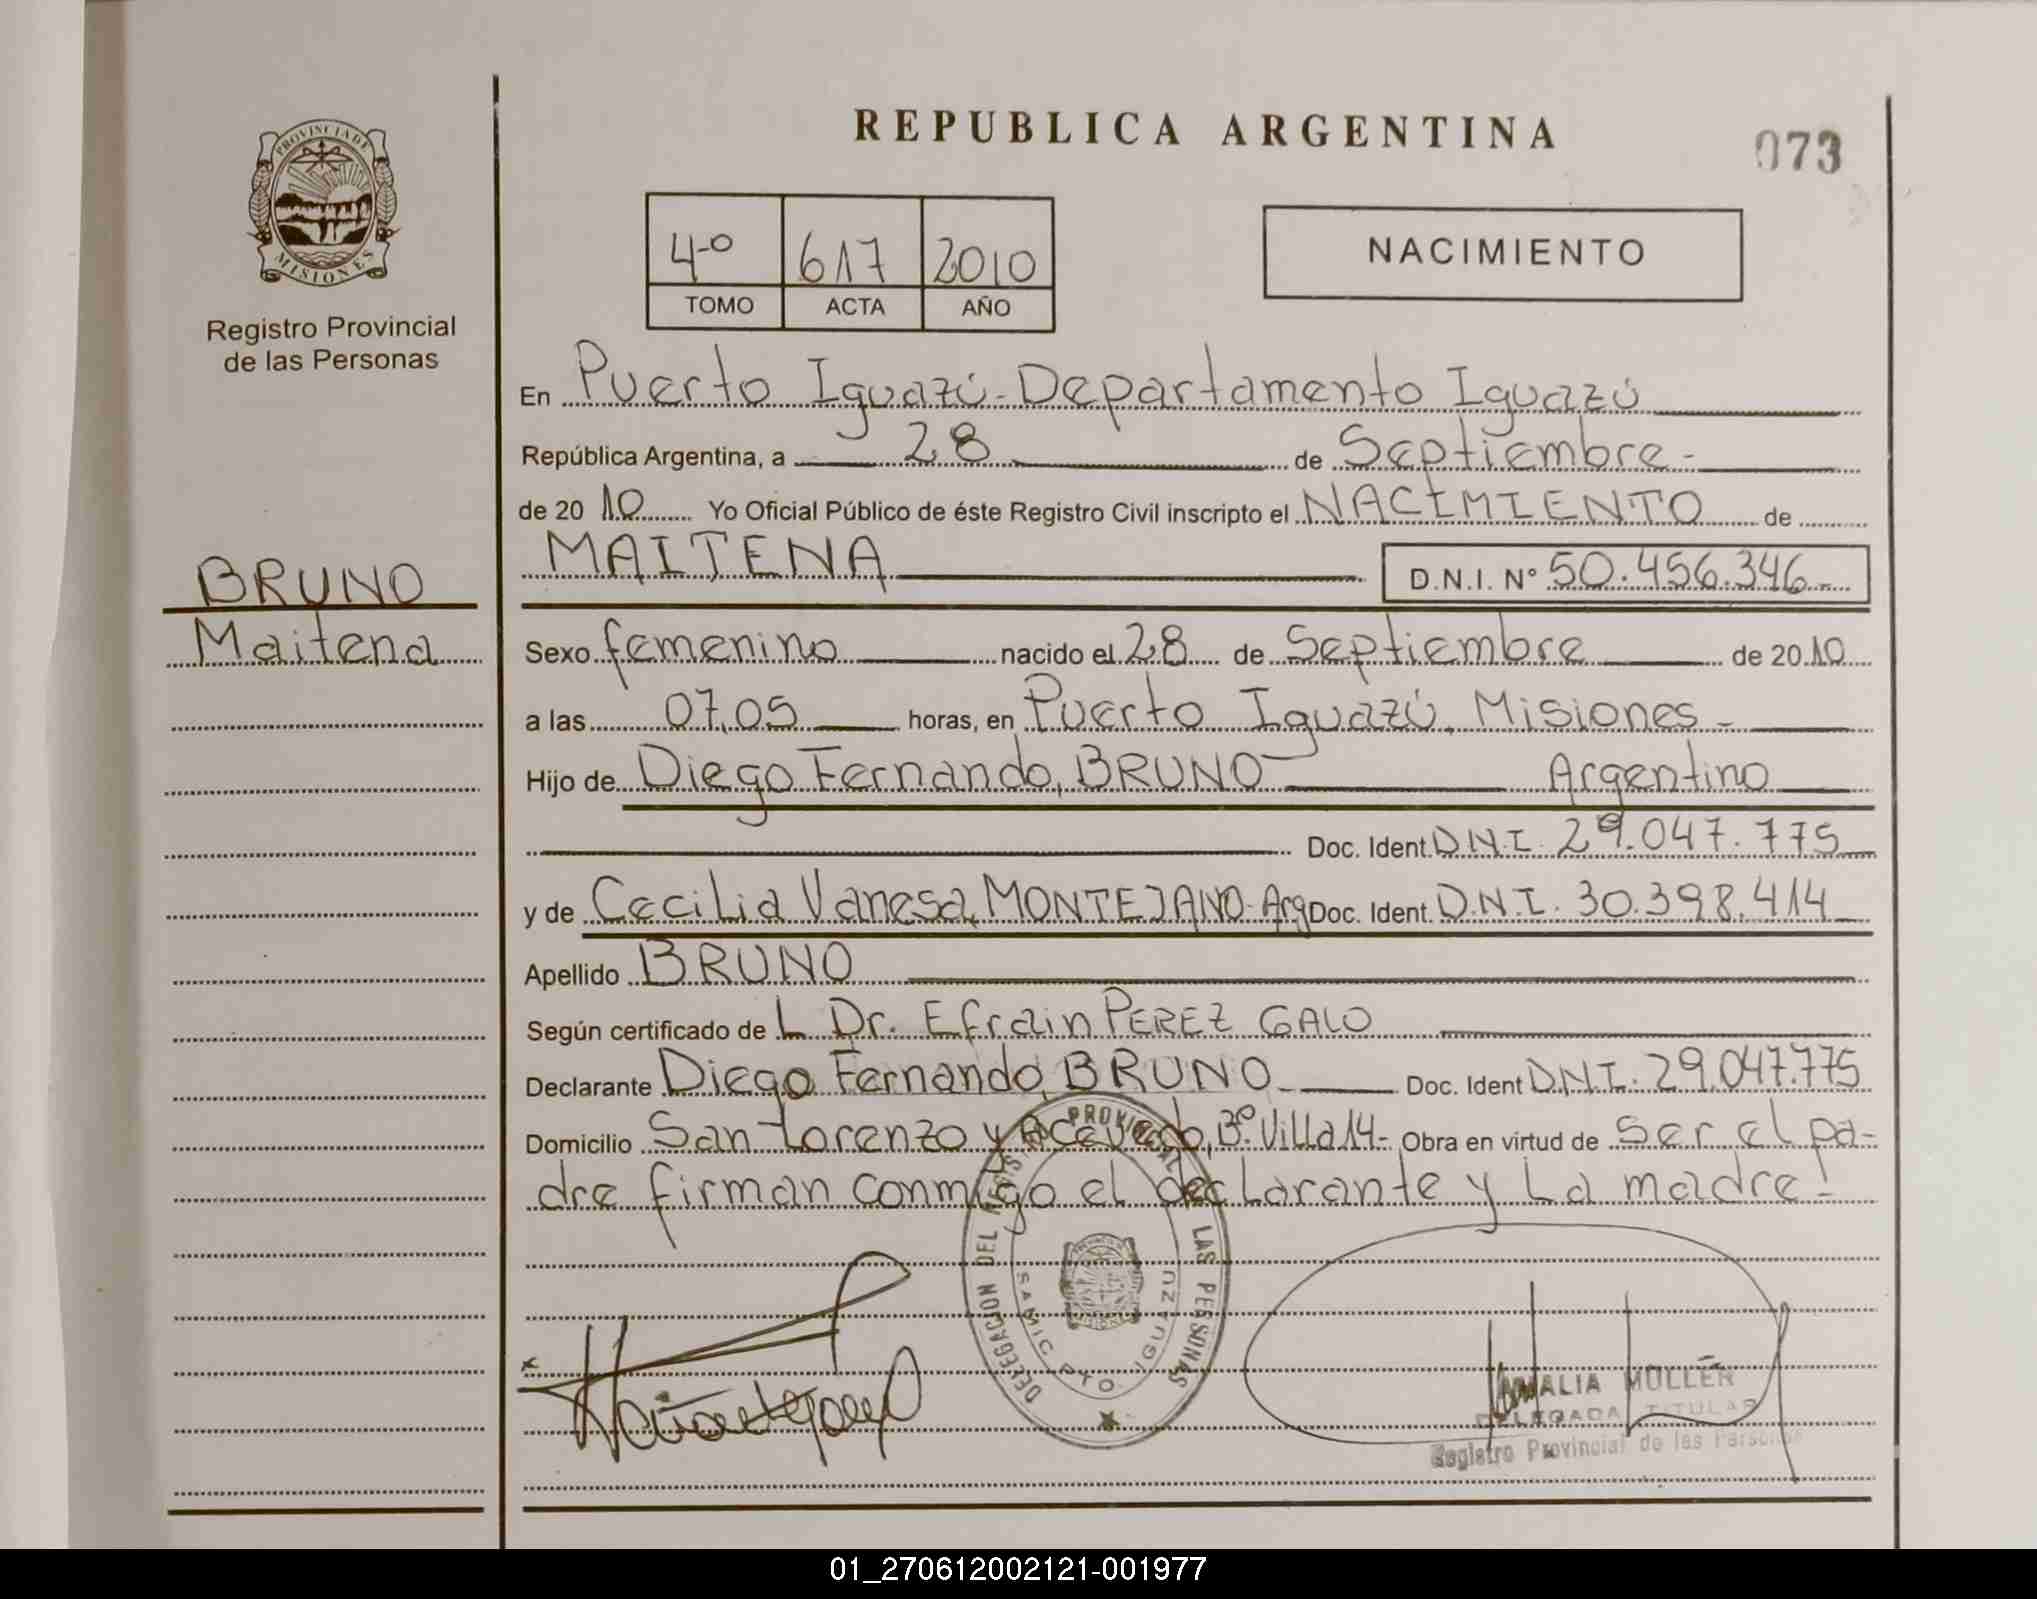 REPUBLICA ARGENTINA
073
PROVINCIA DE
MISIONES
Registro Provincial
de las Personas
4º 617 2010
TOMO ACTA AÑO
NACIMIENTO
En Puerto Iguazú - Departamento Iguazú
República Argentina, a 28 de Septiembre -
de 20 10 Yo Oficial Público de éste Registro Civil inscripto el NACIMIENTO de
MAITENA D.N.I. Nº 50.456.346-
BRUNO
Maitena
Sexo femenino nacido el 28 de Septiembre de 20 10
a las 07,05 horas, en Puerto Iguazú, Misiones -
Hijo de Diego Fernando, BRUNO Argentino
Doc. Ident. D.N.I. 29.047.775
y de Cecilia Vanesa, MONTEJANO - Arg Doc. Ident. D.N.I. 30.398.414
Apellido BRUNO
Según certificado de L Dr. Efrain PEREZ GALO
Declarante Diego Fernando, BRUNO Doc. Ident D.N.I. 29.047.775
Domicilio San Lorenzo y Acevedo, Bº Villa 14 - Obra en virtud de Ser el pa-
dre firman conmigo el declarante y La madre!
DELEGACION DEL REGISTRO PROVINCIAL LAS PERSONAS
SAMIC PTO. IGUAZU
AMALIA MULLER
DELEGADA TITULAR
Registro Provincial de las Personas
01_270612002121-001977